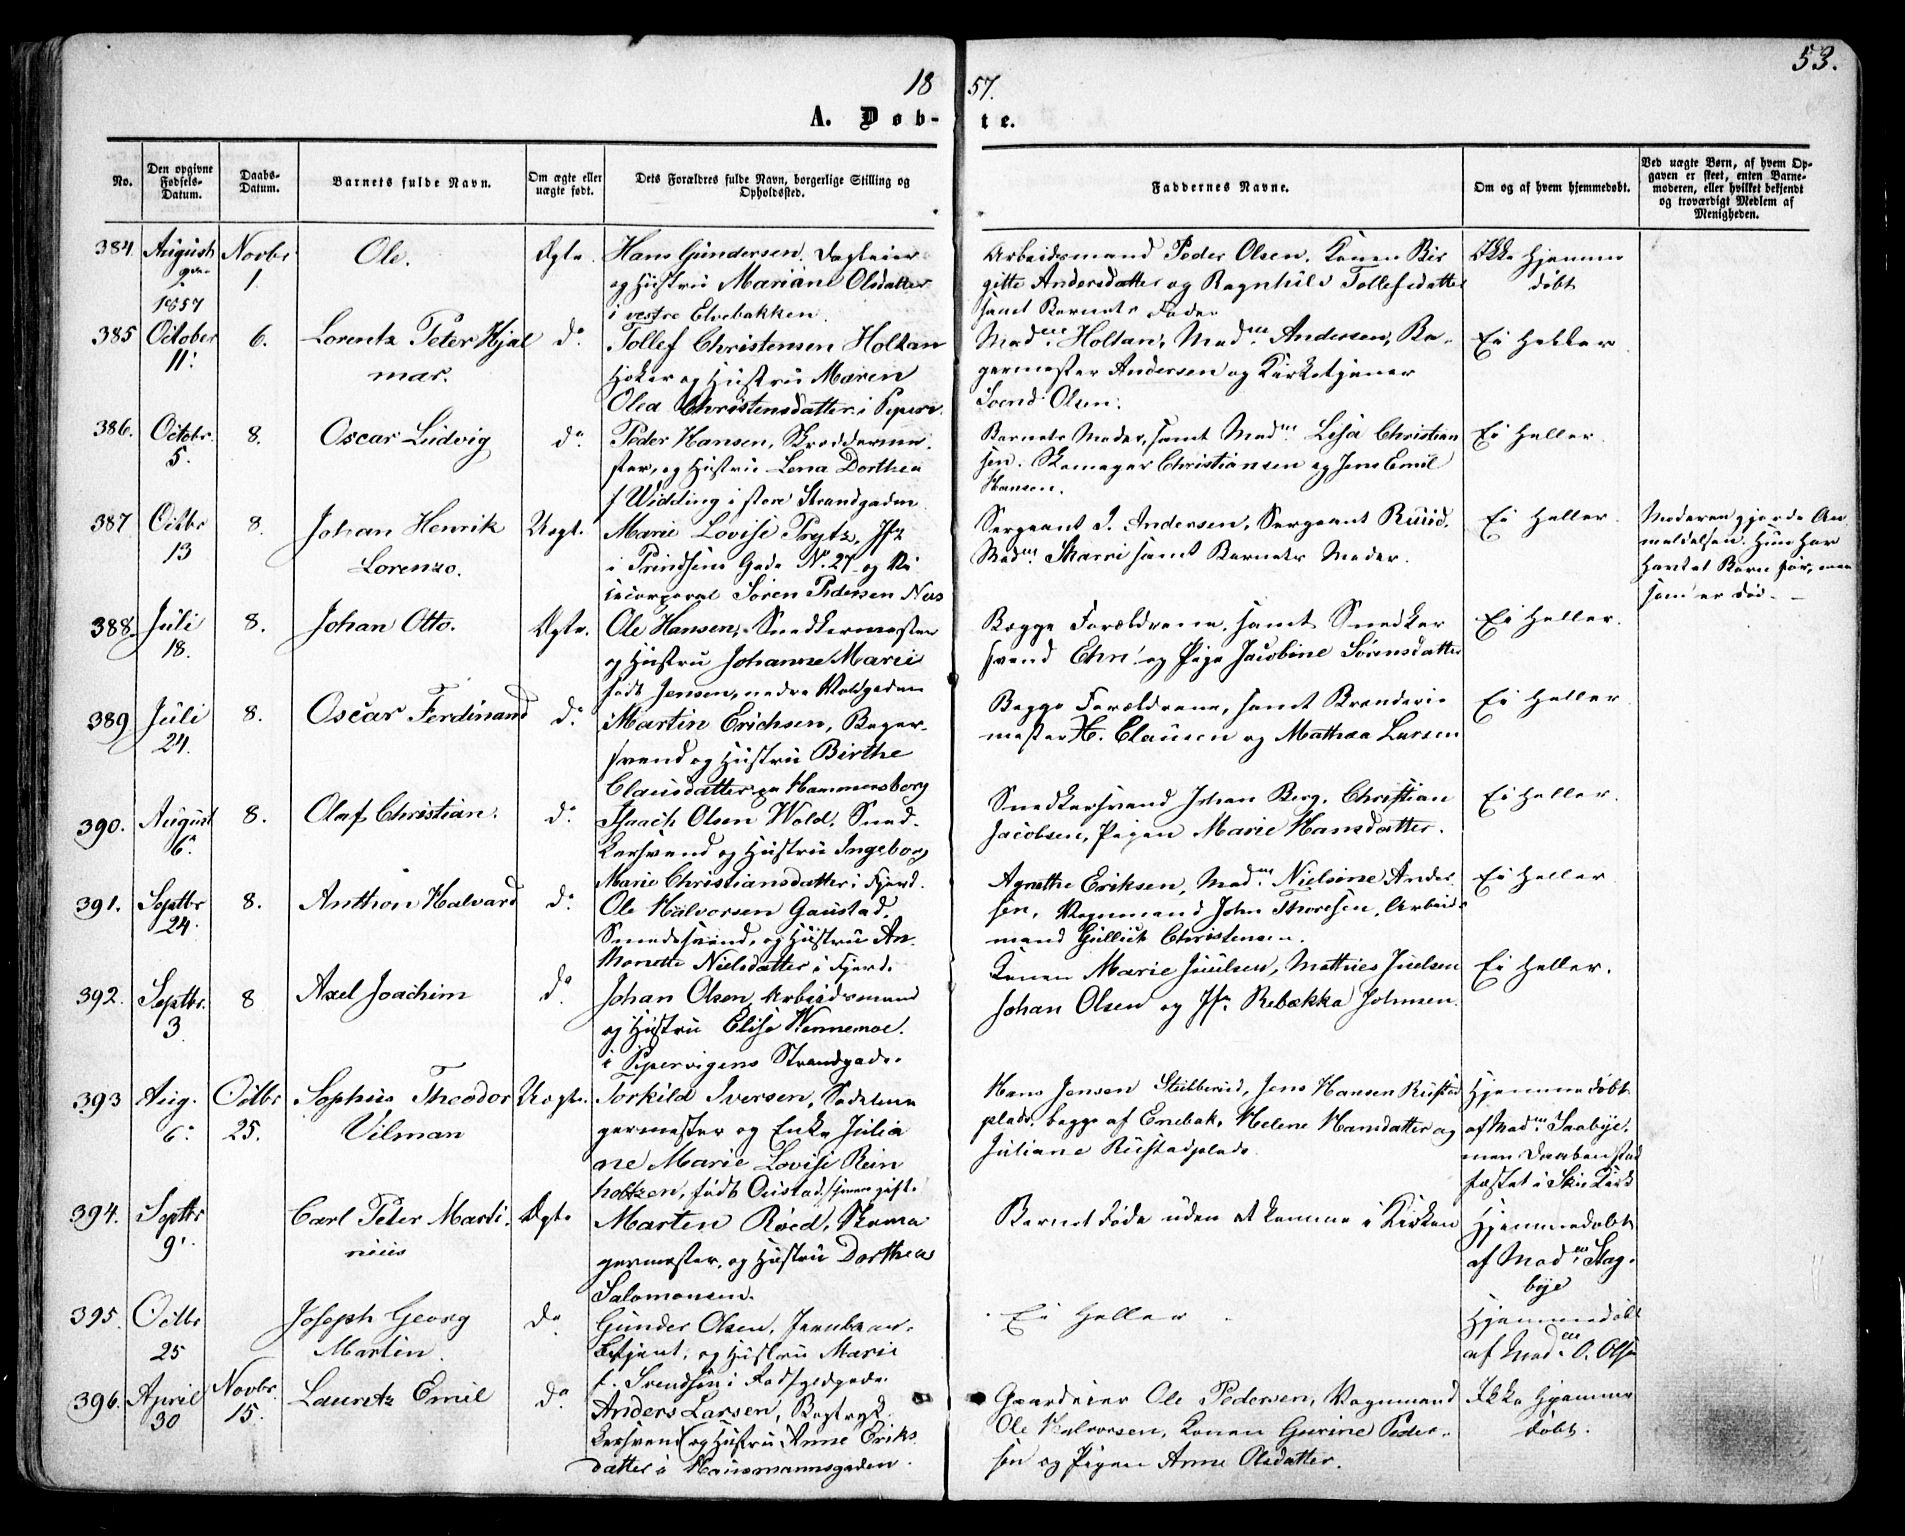 53.
1857.
A. Døbte.
No.
Den opgivne Fødsels-Datum.
Daabs-Datum.
Barnets fulde Navn.
Om ægte eller uægte født.
Dets Forældres fulde Navn, borgerlige Stilling og Opholdssted.
Faddernes Navne.
Om og af hvem hjemmedøbt.
Ved uægte Børn, af hvem Opgaven er skeet, enten Barnemoderen, eller hvilket bekjendt og troværdigt Medlem af Menigheden.
384. August 1857 Novbr 1 Ole. Ægte.
Hans Gundersen, Dagleier
og Hustru Mariane Olsdatter
i vestre Elvebakken.
Arbeidsmand Peder Olsen, Konen Bir
gitte Andersdatter og Ragnhild Tollefsdatter
samt Barnets Fader
Ikke Hjemme
døbt
385 October 11. 6. Lorentz Peter Hjal
mar. do
Tollef Christensen Holtan
Høker og Hustru Maren
Olea Christensdatter i Peperv.
Mad. Holtan, Mad. Andersen, Ba-
germester Andersen og Kirketjener
Svend Olsen.
Ei Heller
386. Octobr. 5. 8. Oscar Ludvig do
Peder Hansen, Skredderme
ster, og Hustru Lena Dorthea
f Widding i store Strandgaden
Barnets Moder, samt Mad. Lisa Christian
sen. Skomager Christiansen og Jens Emil
Hansen.
Ei Heller.
387 Octbr 13 8. Johan Henrik
Lorenzo. Uægt.
Marie Lovise Prytz, Jfr
i Prindsens Gade No. 27 og Vi
cecorporal Søren Pedersen Næs
Sergeant J. Andersen, Sergeant Ruud.
Mad. Skarri samt Barnets Moder.
Ei Heller.
Moderen gjorde An
meldelsen. Hun har
havt et Barn før, men
som er død.
388. Juli 18. 8. Johan Otto. Ægte.
Ole Hansen, Snedkermester
og Hustru Johanne Marie
født Jensen, nedre Voldgaden
Begge Forældrene, samt Snedker
svend Ehn. og Pige Jacobine Sörensdatter
Ei Heller.
389 Juli 24. 8. Oscar Ferdinand do
Martin Erichsen, Bager-
svend og Hustru Birthe
Clausdatter paa Hammersborg
Begge Forældrene, samt Brænderie
mester H. Clausen og Mathea Larsen
Ei Heller
390. August 6. 8. Olaf Christian. do
Isaach Olsen Wold, Sned-
kersvend og Hustru Ingeborg
Marie Christiansdatter i Fjerd.
Snedkersvend Johan Berg, Christian
Jacobsen, Pigen Marie Hansdatter.
Ei Heller.
391. Septbr 24. 8. Anthon Halvard do
Ole Halvorsen Gaustad,
Smedesvend, og Hustru An-
thonette Nielsdatter i Fjerd.
Agnethe Eriksen, Mad. Nielsine Ander
sen, Vognmand John Thoresen, Arbeids
mand Gullick Christensen.
Ei Heller
392. Septbr. 3 8 Axel Joachim do
Johan Olsen, Arbeidsmand
og Hustru Elise Wennemoe.
i Pipervigens Strandgade.
Konen Marie Juulsen, Mathies Juelsen
Johan Olsen og Jfr. Rebækka Johnsen.
Ei Heller.
393 Aug. 6. Octbr 25. Sophus Theodor
Vilman Uægte.
Torkild Iversen, Sadelma
germester og Enke Julia
ne Marie Lovise Rein
holtzen, født Oustad
Hans Jensen Stubberud, Jens Hansen Rustad
plads. begge af Enebak, Helene Hansdatter og
Juliane Rustadplads.
Hjemmedøbt
af Mad. Saabye.
men Daaben stad
fæstet i Skie Kirk
394. Septbr 9. Carl Peter Marti-
nius Ægte
Marten Röed, Skoma
germester, og Hustru Dorthea
Salomonsen.
Barnet døde uden at komme i Kirken
Hjemmedøbt
af Mad. Stag-
bye
395. Octbr 25 Joseph Georg
Martin. do
Gunder Olsen,
betjent, og Hustru Marie
f. Svendsen i Raadhusgaden
Ei Heller
Hjemmedøbt
af Mad. O. Olsen
396. April 30 Novbr. 15. Lauritz Emil do
Anders Larsen, Bogtryk-
kersvend og Hustru Anne Eriks
datter i Hausmannsgaden.
Gaardeier Ole Pedersen, Vognmand
Ole Halvorsen, Konen Gurine Peder-
sen og Pigen Anne Olsdatter.
Ikke Hjemme
døbt.